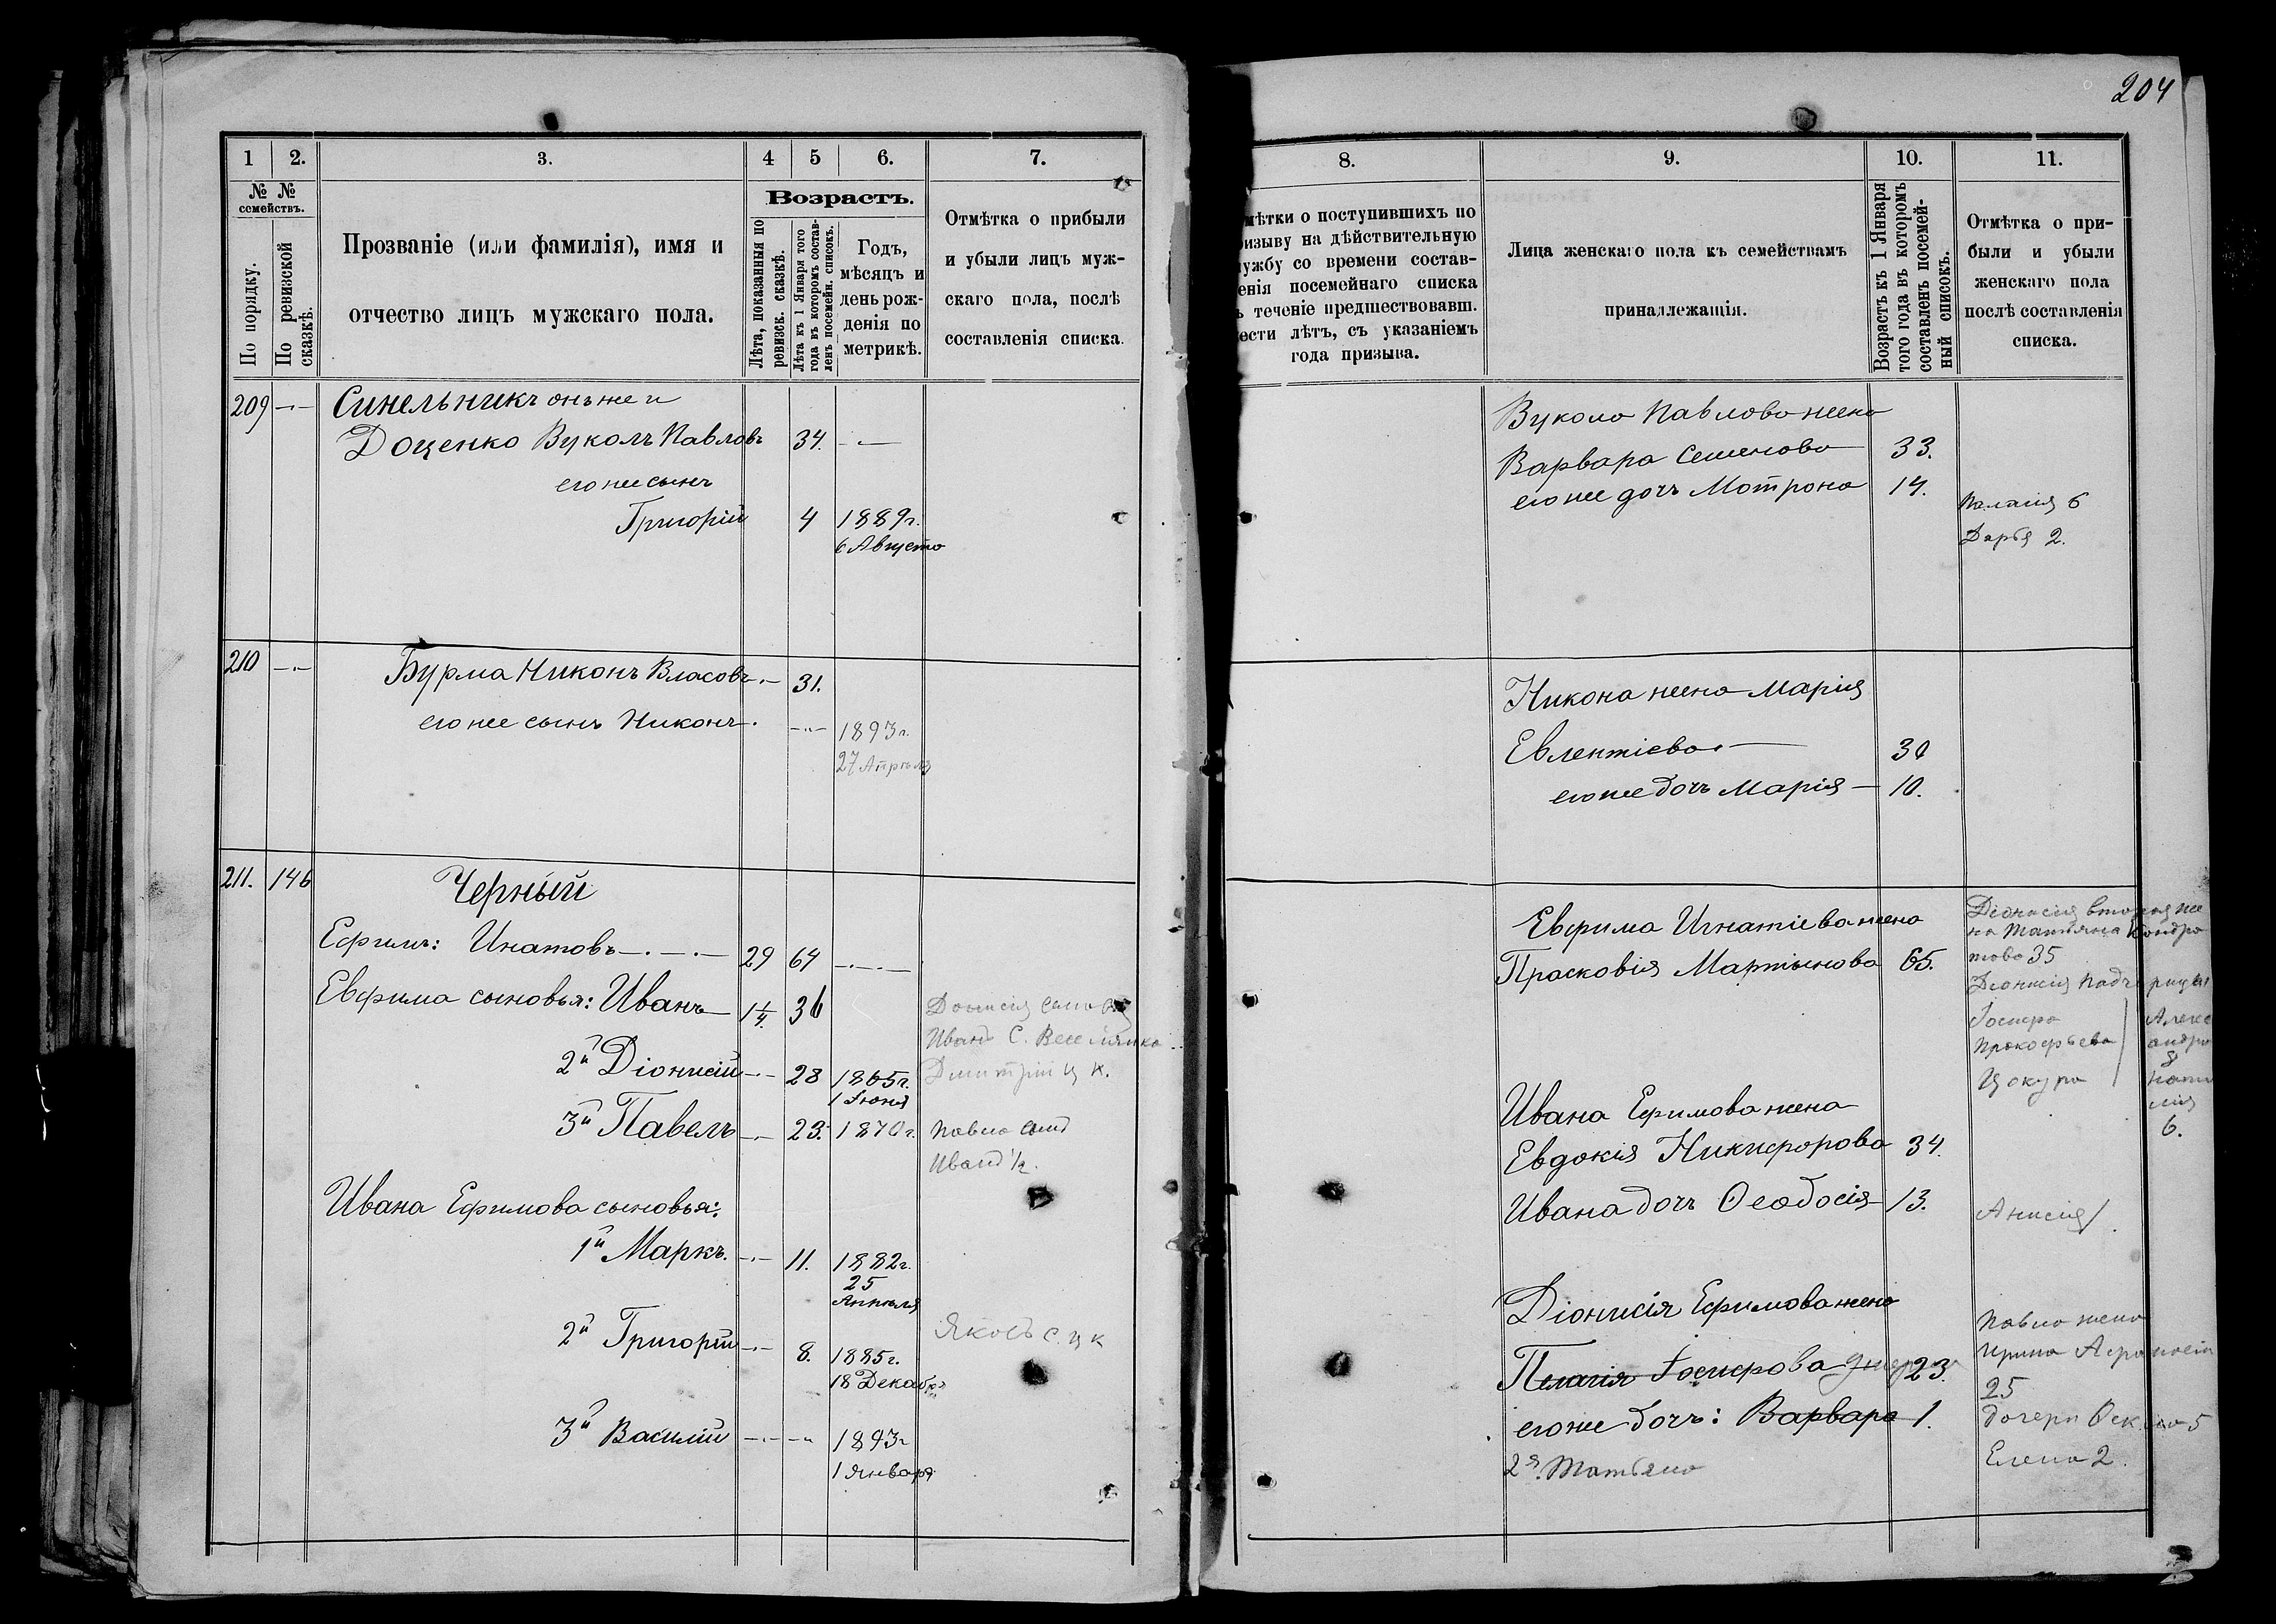 204
1
2.
3.
4
5
6.
7.
№ №
семействъ.
По порядку.
По ревизской
сказкѣ.
Прозваніе (или фамилія), имя и
отчество лицъ мужскаго пола.
Возрастъ.
Лѣта, показанныя по
ревизск. сказкѣ.
Лѣта къ 1 Января того
года въ которомъ состав-
ленъ посемейн. списокъ.
Годъ,
мѣсяцъ и
день рож-
денія по
метрикѣ.
Отмѣтка о прибыли
и убыли лицъ муж-
скаго пола, послѣ
составленія списка.
209 -·- Синельникъ онъ же и
Доценко Вуколъ Павловъ 34. -·-
его же сынъ
Григорій 4 1889г.
6 Августа
210 -·- Бурма Никонъ Власовъ.- 31.
его же сынъ Никонъ. -·- 1893г.
27 Апрѣля
211. 146 Черный
Ефимъ: Инатовъ -·-·- 29 64 -·-·-
Евфима сыновья: Иванъ 1 1/4. 36
2й Діонисій -·- 28 1865г.
1 Іюня
3й Павелъ -·- 23. 1870г.
Иванъ С.
Дмитрій ц к.
Павла сынъ
Иванъ 1/2.
Ивана Ефимова сыновья:
1й Маркъ. -·- 11. 1882г.
25
Апрѣля
2й Григорій -·- 8. 1885г.
18 Декабря
Яковъ с. ц к
3й Василій -·- -·- 1893г
1 Января
8.
9.
10.
11.
мѣтки о поступившихъ по
ризыву на дѣйствительную
ужбу со времени состав-
енія посемейнаго списка
ъ теченіе предшествовавш.
ести лѣтъ, съ указаніемъ
года призыва.
Лица женскаго пола къ семействамъ
принадлежащія.
Возрастъ къ 1 Января
того года въ которомъ
составленъ посемей-
ный списокъ.
Отмѣтка о при-
были и убыли
женскаго пола
послѣ составленія
списка.
Вукола Павлова жена
Варвара Семенова 33.
его же дочь Мотрона 14.
Пелагія 6
Дарья 2.
Никона жена Марія
Евлентіева 30
его же дочь Марія - 10.
Евфима Игнатіева жена
Прасковія Мартынова 65.
Діонисія вторая же
на Татьяна Кондра
това 35
Діонисія падчерицы
Іосифа
Прокофьева
Цокура
Алекс
андра
8
Ната
лія
6.
Ивана Ефимова жена
Евдокія Никифорова 34.
Ивана дочь Ѳеодосія 13.
Анисія 1.
Діонисія Ефимова жена
Пелагія Іосифова умерла 23.
его же дочь: Варвара 1.
2я. Татьяна
Павла жена
Ирина
25
дочери 5
Елена 2.